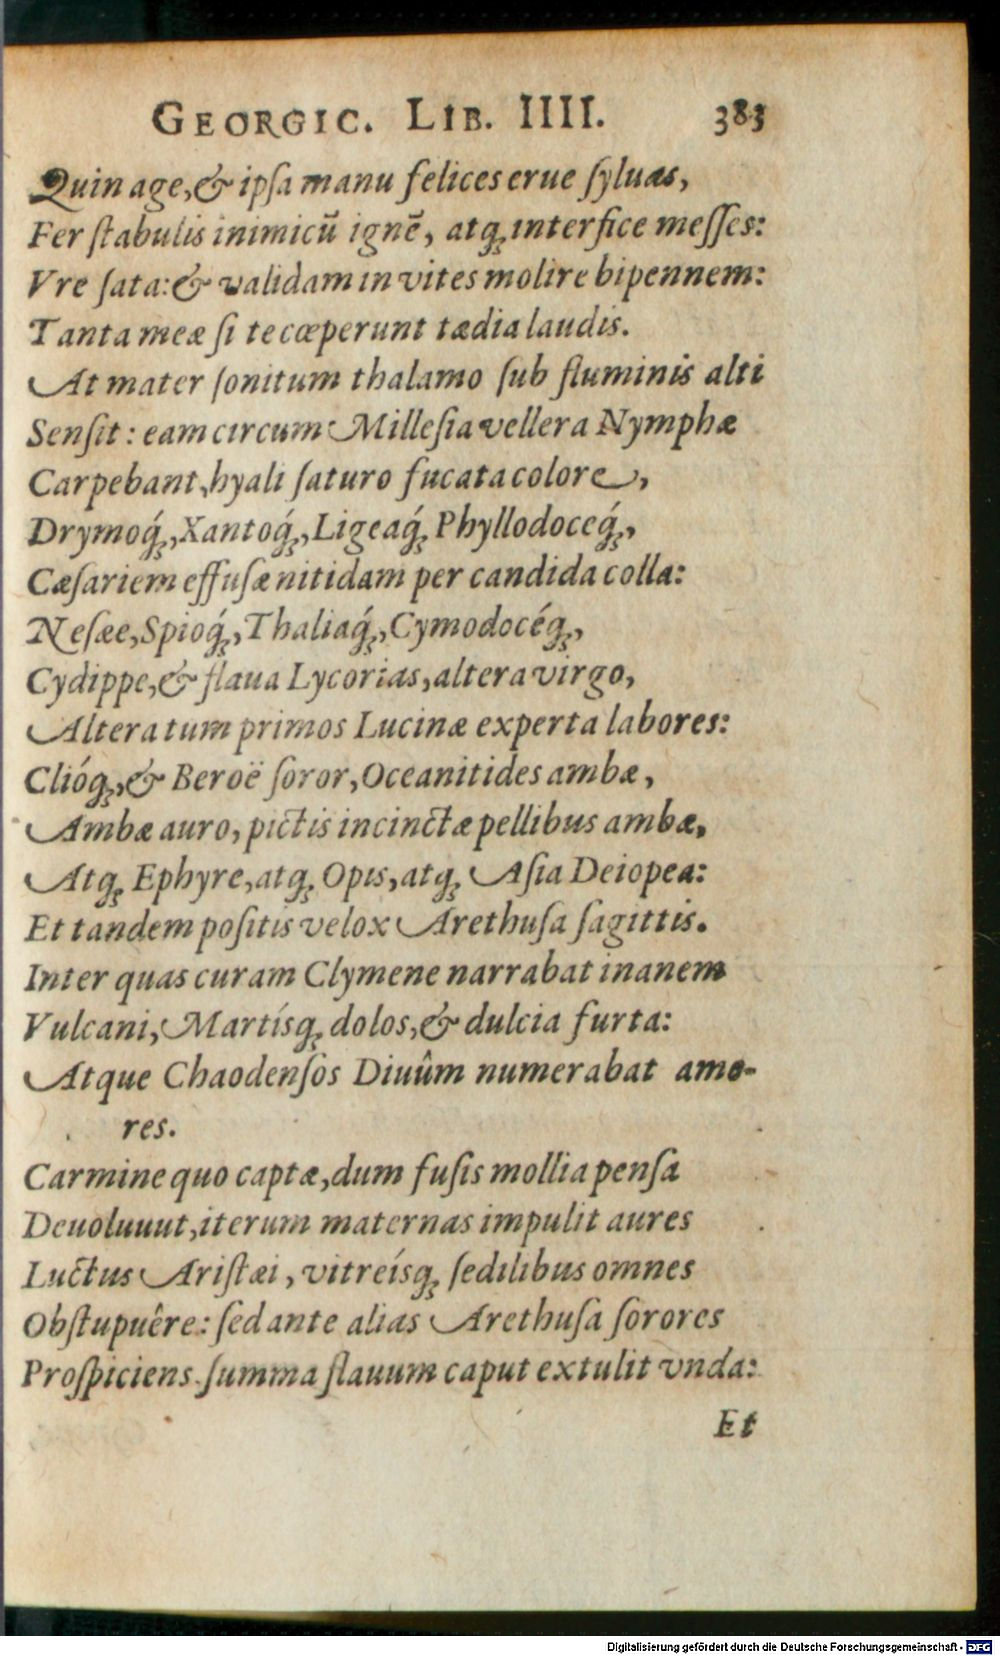 GEORGIC. LIB. IIII. 383
Quin age, & ipſa manu felices erue ſyluas,
Fer ſtabulis inimicū ignē, atq; interfice meſſes:
Vre ſata: & validam in vites molire bipennem:
Tanta meæ ſi te cœperunt tædia laudis.
At mater ſonitum thalamo ſub fluminis alti
Senſit: eam circum Milleſia vellera Nymphæ
Carpebant, hyali ſaturo fucata colore,
Drymoq́;, Xantoq́;, Ligeaq́; Phyllodoceq́;,
Cæſariem effuſæ nitidam per candida colla:
Neſæe, Spioq́;, Thaliaq́;, Cymodocéq;,
Cydippe, & flaua Lycorias, altera virgo,
Altera tum primos Lucinæ experta labores:
Clióq;, & Beroë ſoror, Oceanitides ambæ,
Ambæ auro, pictis incinctæ pellibus ambæ,
Atq; Ephyre, atq; Opis, atq; Aſia Deiopea:
Et tandem poſitis velox Arethuſa ſagittis.
Inter quas curam Clymene narrabat inanem
Vulcani, Martíſq; dolos, & dulcia furta:
Atque Chaodenſos Diuûm numerabat amo-
res.
Carmine quo captæ, dum fuſis mollia penſa
Deuoluuut, iterum maternas impulit aures
Luctus Ariſtæi, vitreíſq; ſedilibus omnes
Obſtupuêre: ſed ante alias Arethuſa ſorores
Proſpiciens ſumma flauum caput extulit vnda:
Et
Digitalisierung gefördert durch die Deutsche Forschungsgemeinschaft - DFG